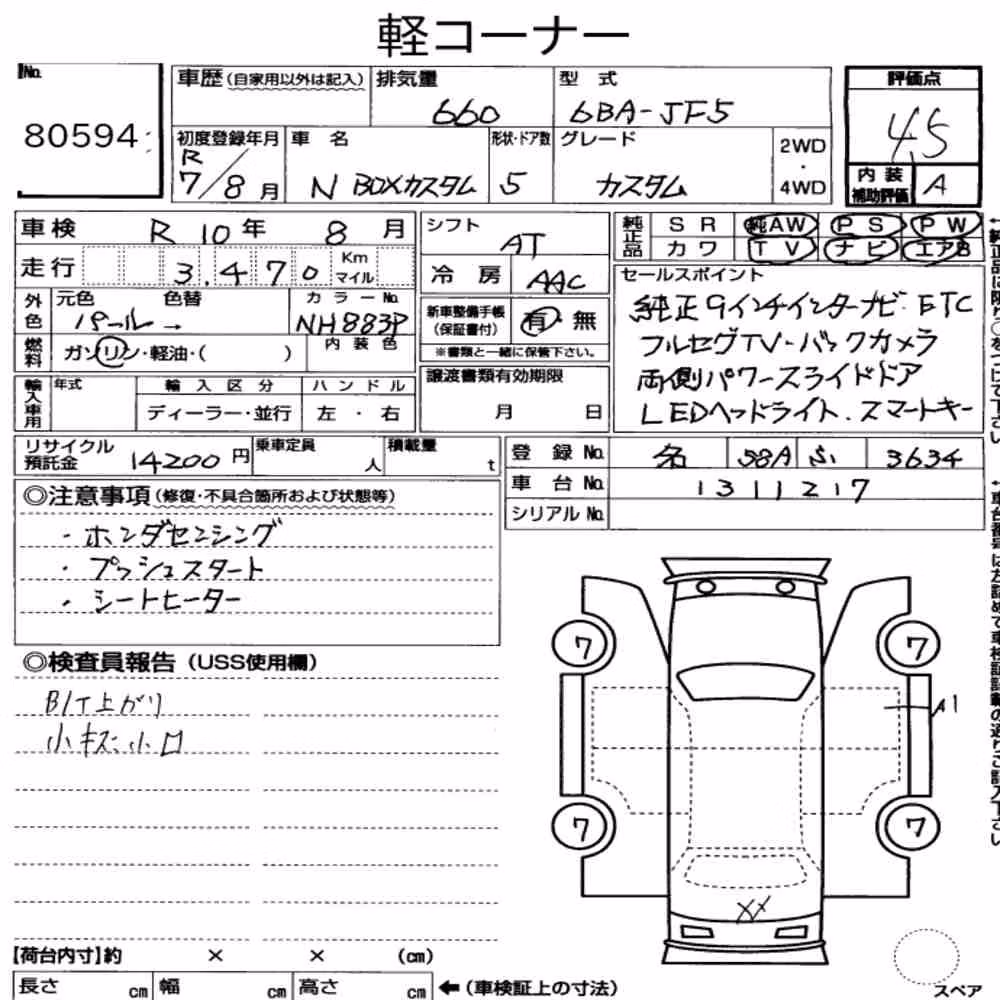 軽コーナー
No.
80594
車歴(自家用以外は記入)
排気量
660
型式
6BA-JF5
評価点
4.5
初度登録年月
R
7/8月
車名
N BOXカスタム
形状・ドア数
5
グレード
カスタム
2WD
・
4WD
内装
補助評価
A
車検
R 10年 8月
走行
3,470
Km
マイル
外色
元色 色替
パール→
カラーNo.
NH883P
燃料
ガソリン・軽油・( )
内装色
シフト
AT
冷房
AAC
新車整備手帳
(保証書付)
有・無
※書類と一緒に保管下さい。
純正品
SR 純AW PS PW
カワ TV ナビ エアB
セールスポイント
純正9インチインターナビ・ETC
フルセグTV・バックカメラ
両側パワースライドドア
LEDヘッドライト.スマートキー
輸入車用
年式
輸入区分
ディーラー・並行
ハンドル
左・右
譲渡書類有効期限
月 日
リサイクル
預託金
14200円
乗車定員
人
積載量
t
登録No. 名 58A 3634
車台No. 1311217
シリアルNo.
◎注意事項(修復・不具合箇所および状態等)
・ホンダセンシング
・プッシュスタート
・シートヒーター
◎検査員報告(USS使用欄)
B/T上がり
小キズ小凹
7
7
A1
7
7
XX
スペア
【荷台内寸】約 × × (cm)
長さ cm 幅 cm 高さ cm ←(車検証上の寸法)
←純正品に限り○をつけて下さい
←車台番号は左詰めで車検証記載の通りご記入下さい